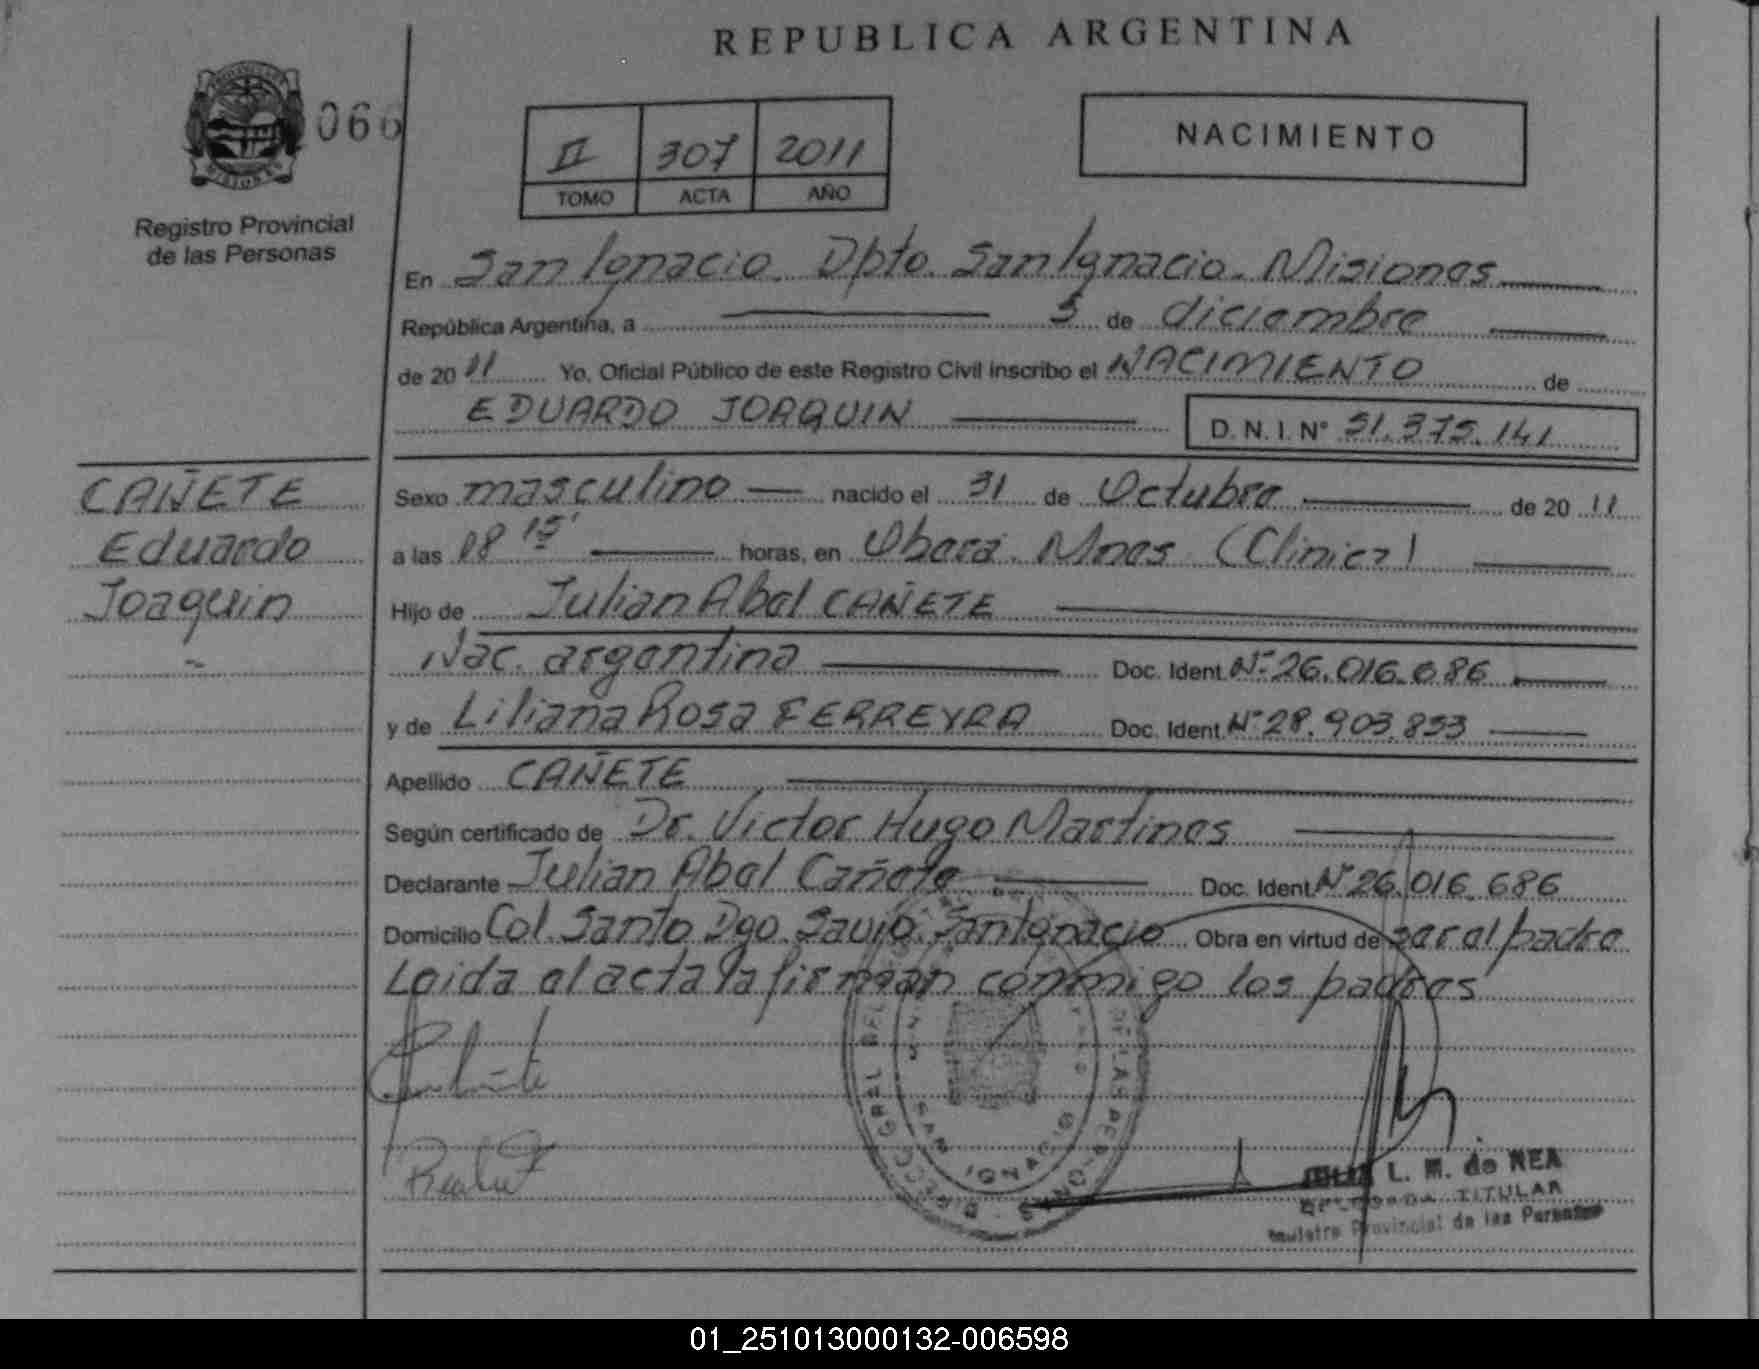 REPUBLICA ARGENTINA
066
II 307 2011
TOMO ACTA AÑO
NACIMIENTO
Registro Provincial
de las Personas
En San Ignacio. Dpto. San Ignacio. Misiones
República Argentina, a 5 de diciembre
de 2011 Yo, Oficial Público de este Registro Civil inscribo el NACIMIENTO de
EDUARDO JOAQUIN D. N. I. N° 51.375.141
CAÑETE
Eduardo
Joaquin
Sexo masculino nacido el 31 de Octubre de 2011
a las 08 15' horas, en Obera. Mnes (Clinica)
Hijo de Julian Abel CAÑETE
Nac. argentina Doc. Ident. N° 26.016.686
y de Liliana Rosa FERREYRA Doc. Ident. N° 28.903.853
Apellido CAÑETE
Según certificado de Dr. Victor Hugo Martines
Declarante Julian Abel Cañete Doc. Ident. N° 26.016.686
Domicilio Col. Santo Dgo. Savio. San Ignacio Obra en virtud de ser el padre
Leida el acta la firman conmigo los padres
L. M. de NEA
DELEGADA TITULAR
Registro Provincial de las Personas
01_251013000132-006598